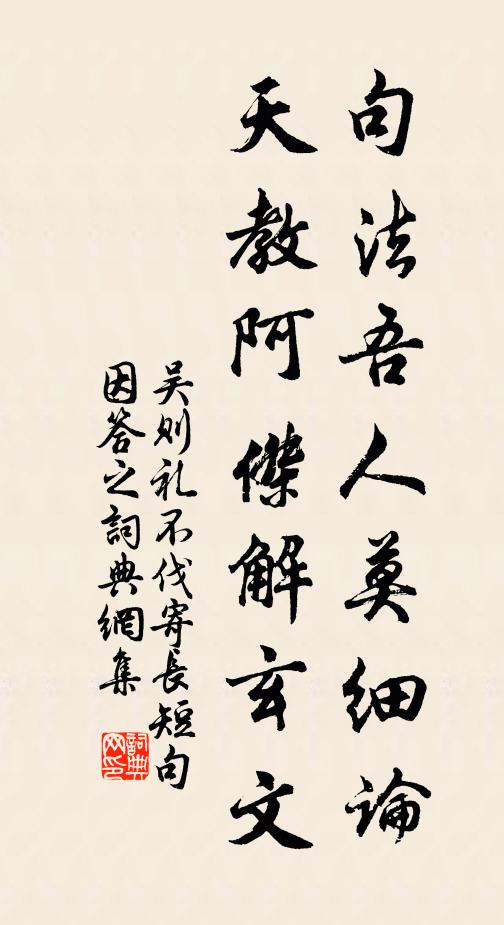 句法吾人莫細論
天教阿傑解玄文
吴则礼不伐寄長短句
因答之詞典網集
詞典
网印